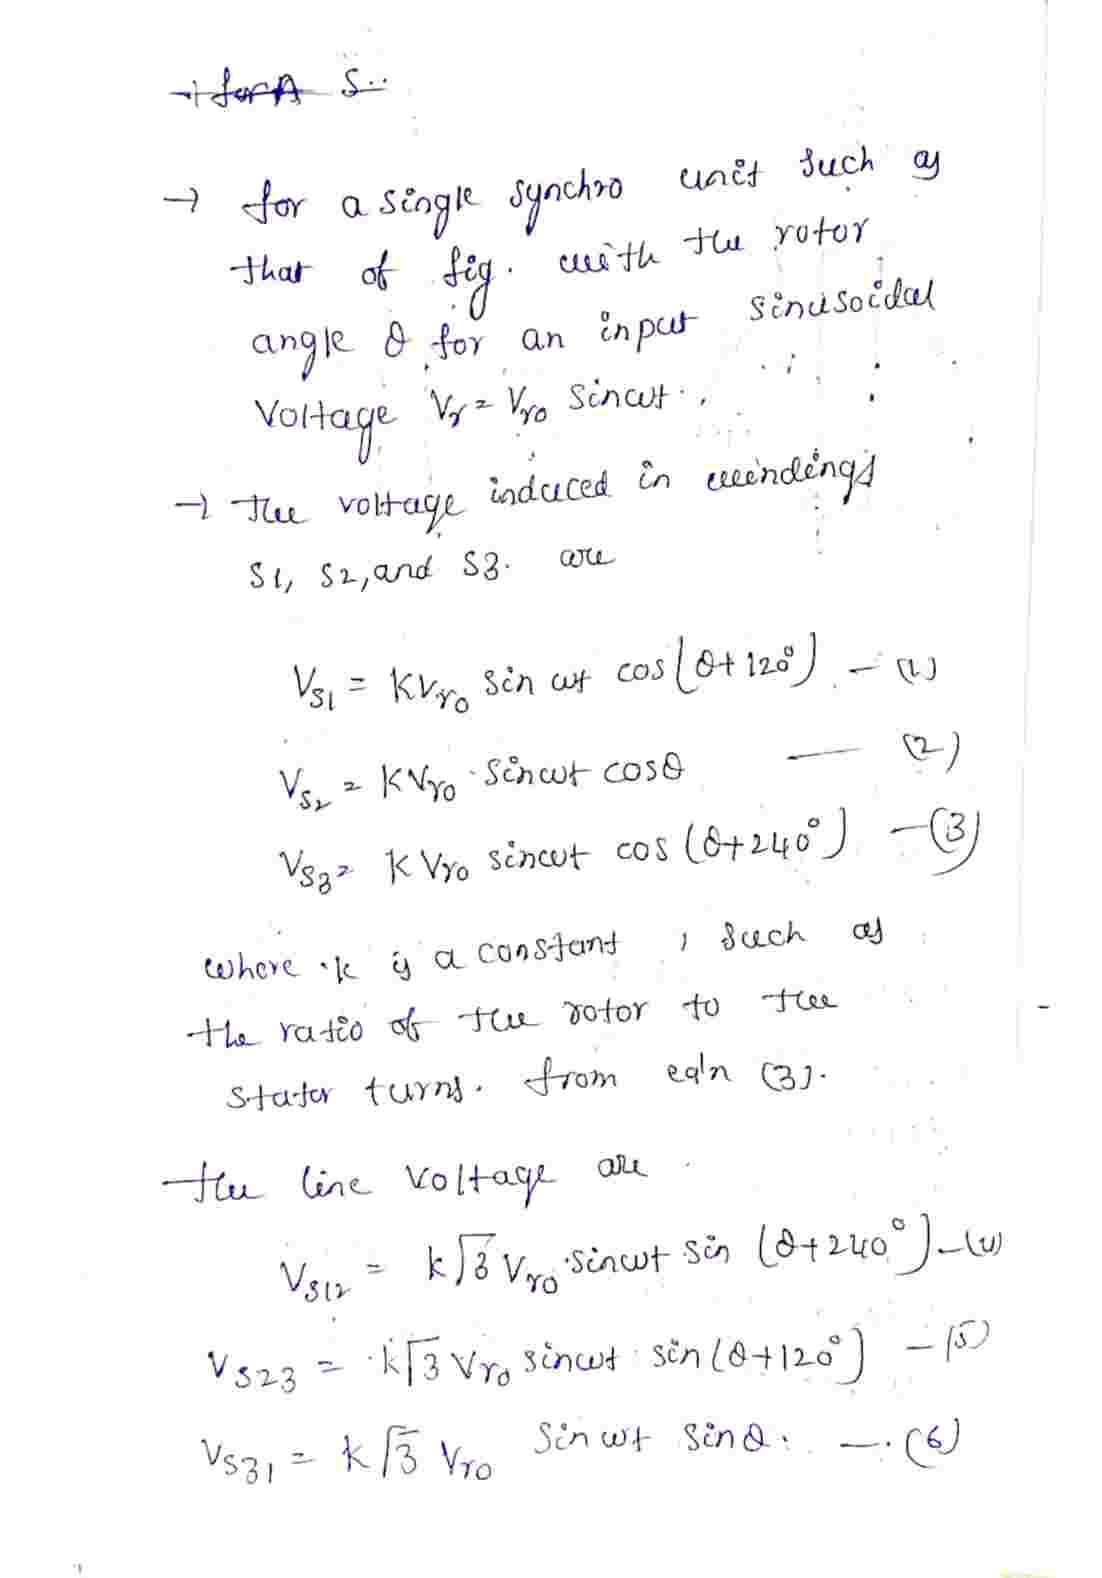 → for A S..
→ for a single synchro unit such as
that of fig. with the rotor
angle θ for an input sinusoidal
Voltage Vr = Vro sinωt.
→ The voltage induced in windings
S1, S2, and S3. are
VS1 = KVro sin ωt cos(θ+120°) — (1)
VS2 = KVro sinωt cosθ — (2)
VS3 = K Vro sinωt cos (θ+240°) — (3)
where k is a constant, such as
the ratio of the rotor to the
stator turns. from eq'n (3).
The line voltage are
VS12 = k√3 Vro sinωt sin (θ+240°) — (4)
VS23 = k√3 Vro sinωt sin(θ+120°) — (5)
VS31 = k√3 Vro Sin ωt sinθ. — (6)